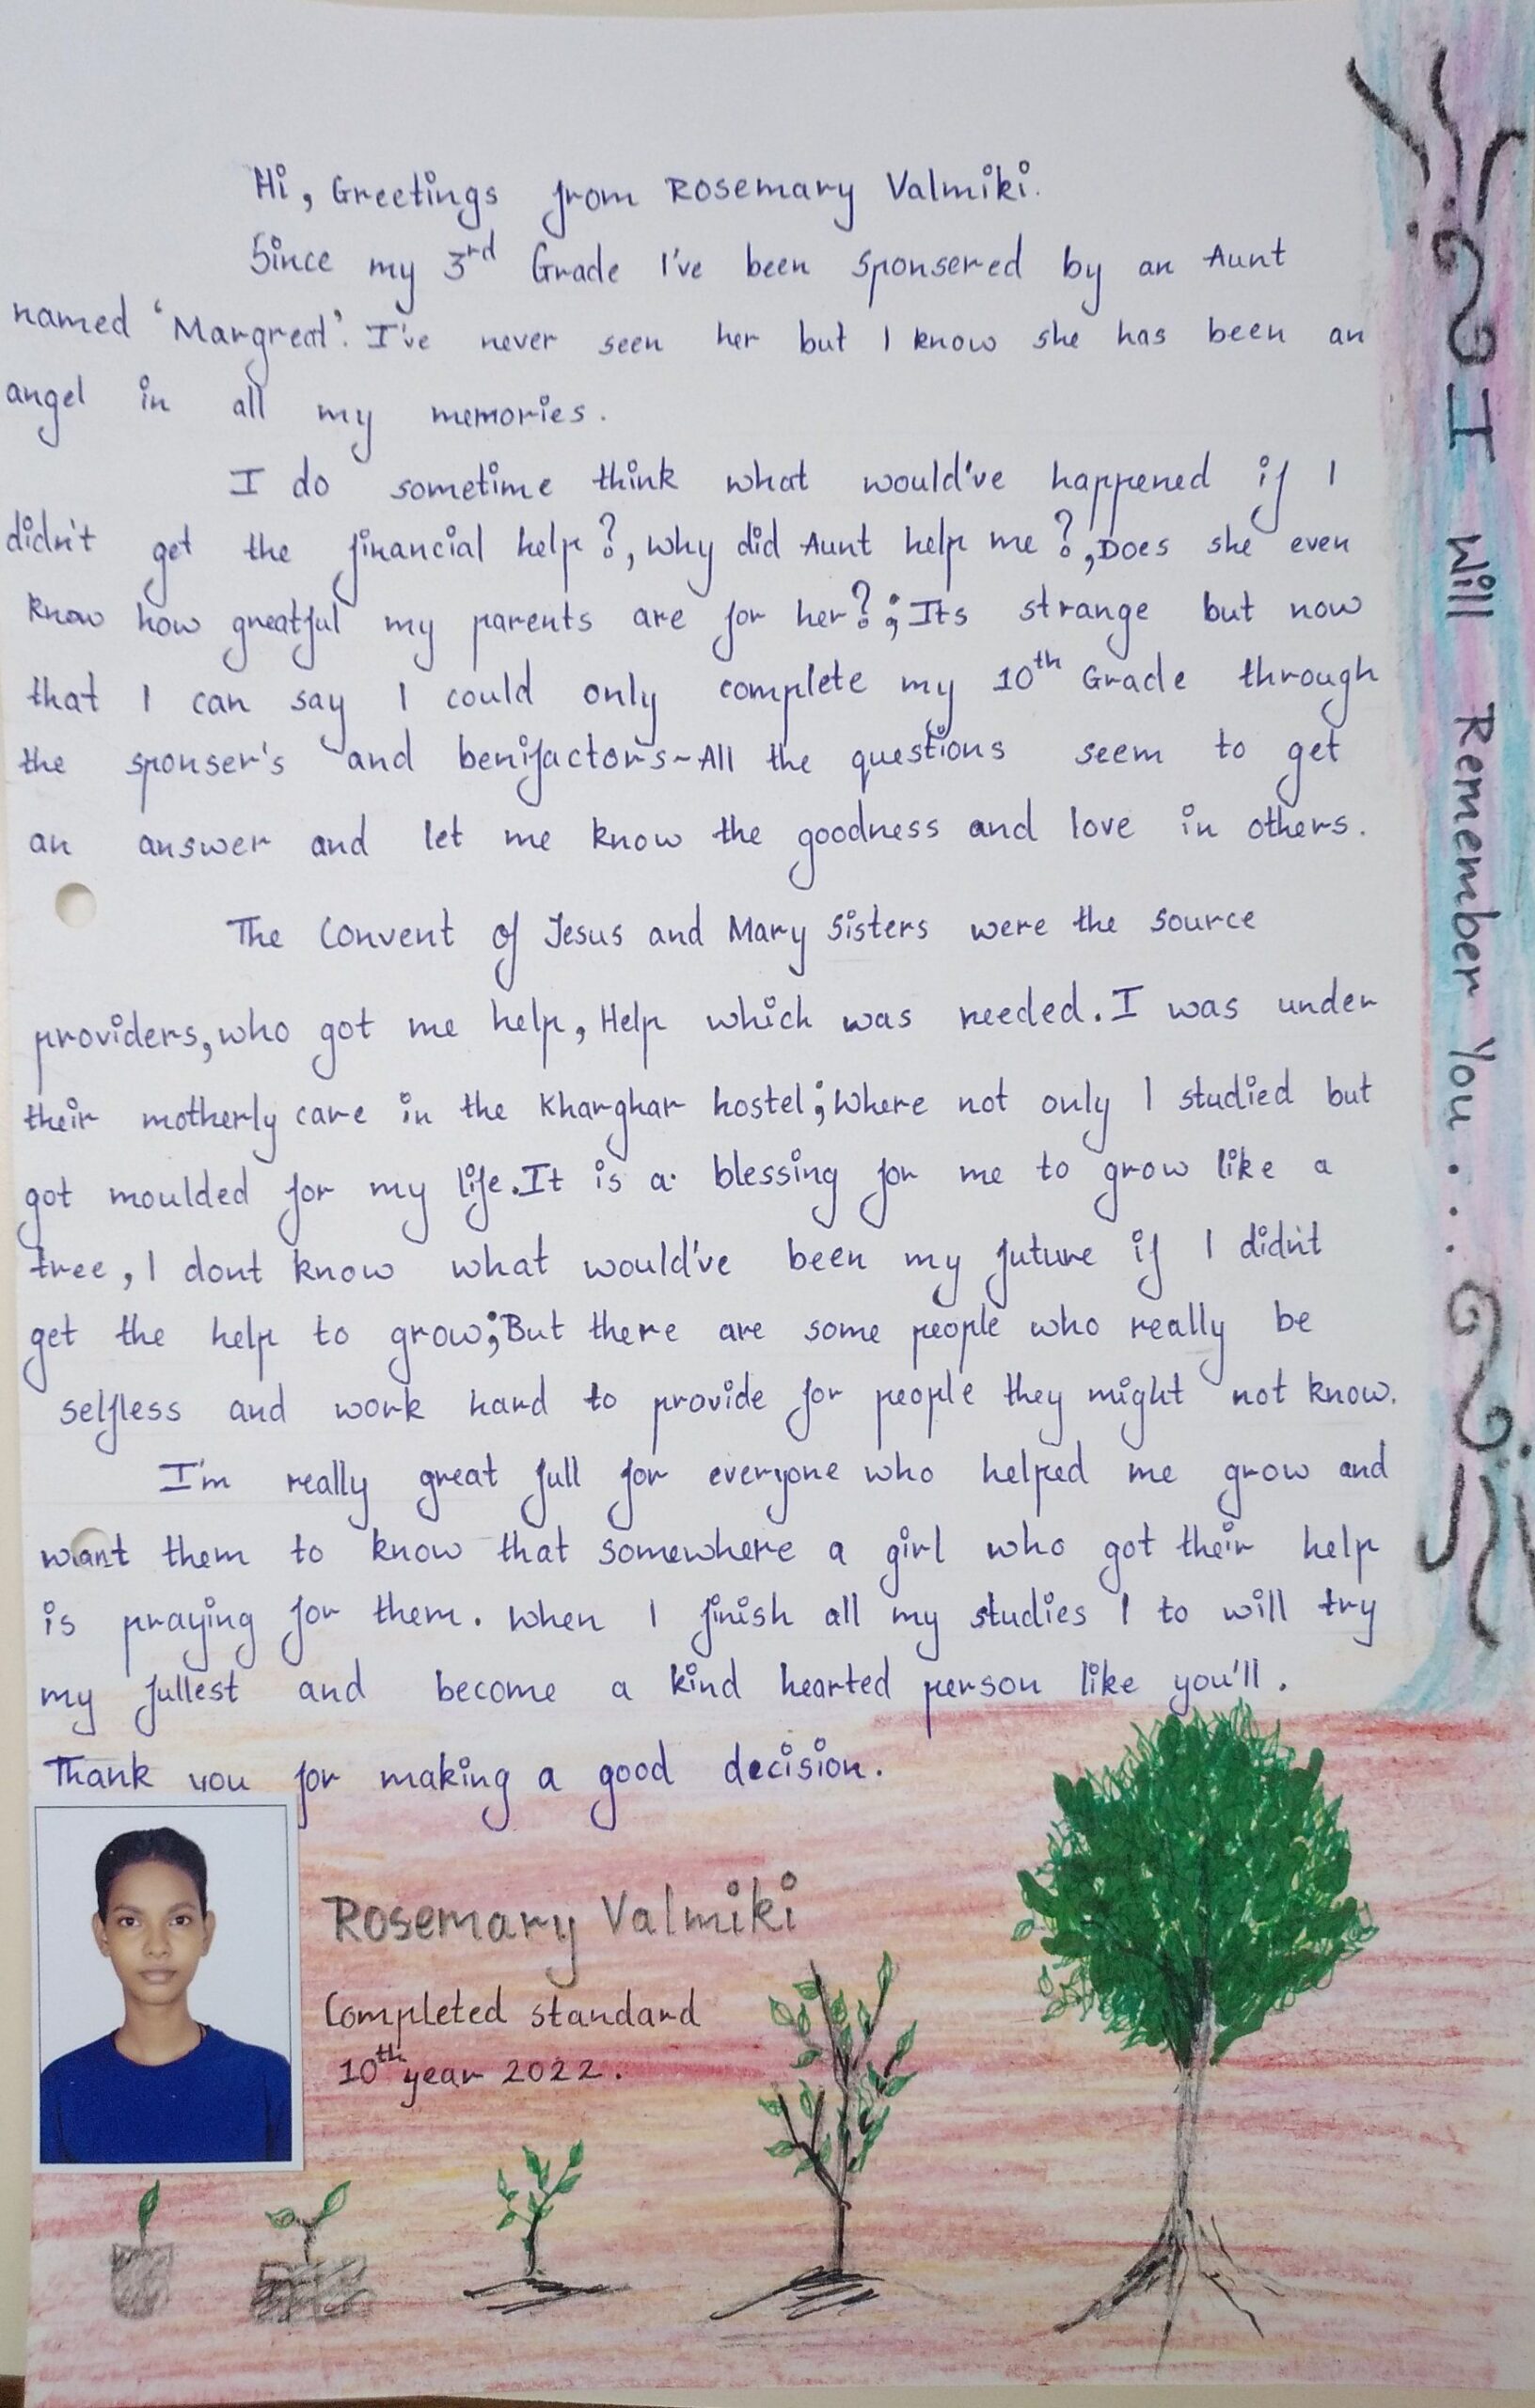 Hi, Greetings from Rosemary Valmiki.
Since my 3rd Grade I've been sponsered by an Aunt
named 'Margreat'. I've never seen her but I know she has been an
angel in all my memories.
I do sometime think what would've happened if I
didn't get the financial help?, Why did Aunt help me?, Does she even
know how greatful my parents are for her?; Its strange but now
that I can say I could only complete my 10th Grade through
the sponser's and benifactors~All the questions seem to get
an answer and let me know the goodness and love in others.
The Convent of Jesus and Mary Sisters were the source
providers, who got me help, Help which was needed. I was under
their motherly care in the Kharghar hostel; Where not only I studied but
got moulded for my life. It is a blessing for me to grow like a
tree, I dont know what would've been my future if I didn't
get the help to grow; But there are some people who really be
selfless and work hard to provide for people they might not know.
I'm really great full for everyone who helped me grow and
want them to know that somewhere a girl who got their help
is praying for them. When I finish all my studies I to will try
my fullest and become a kind hearted person like you'll.
Thank you for making a good decision.
Rosemary Valmiki
Completed standard
10th year 2022.
I Will Remember You....